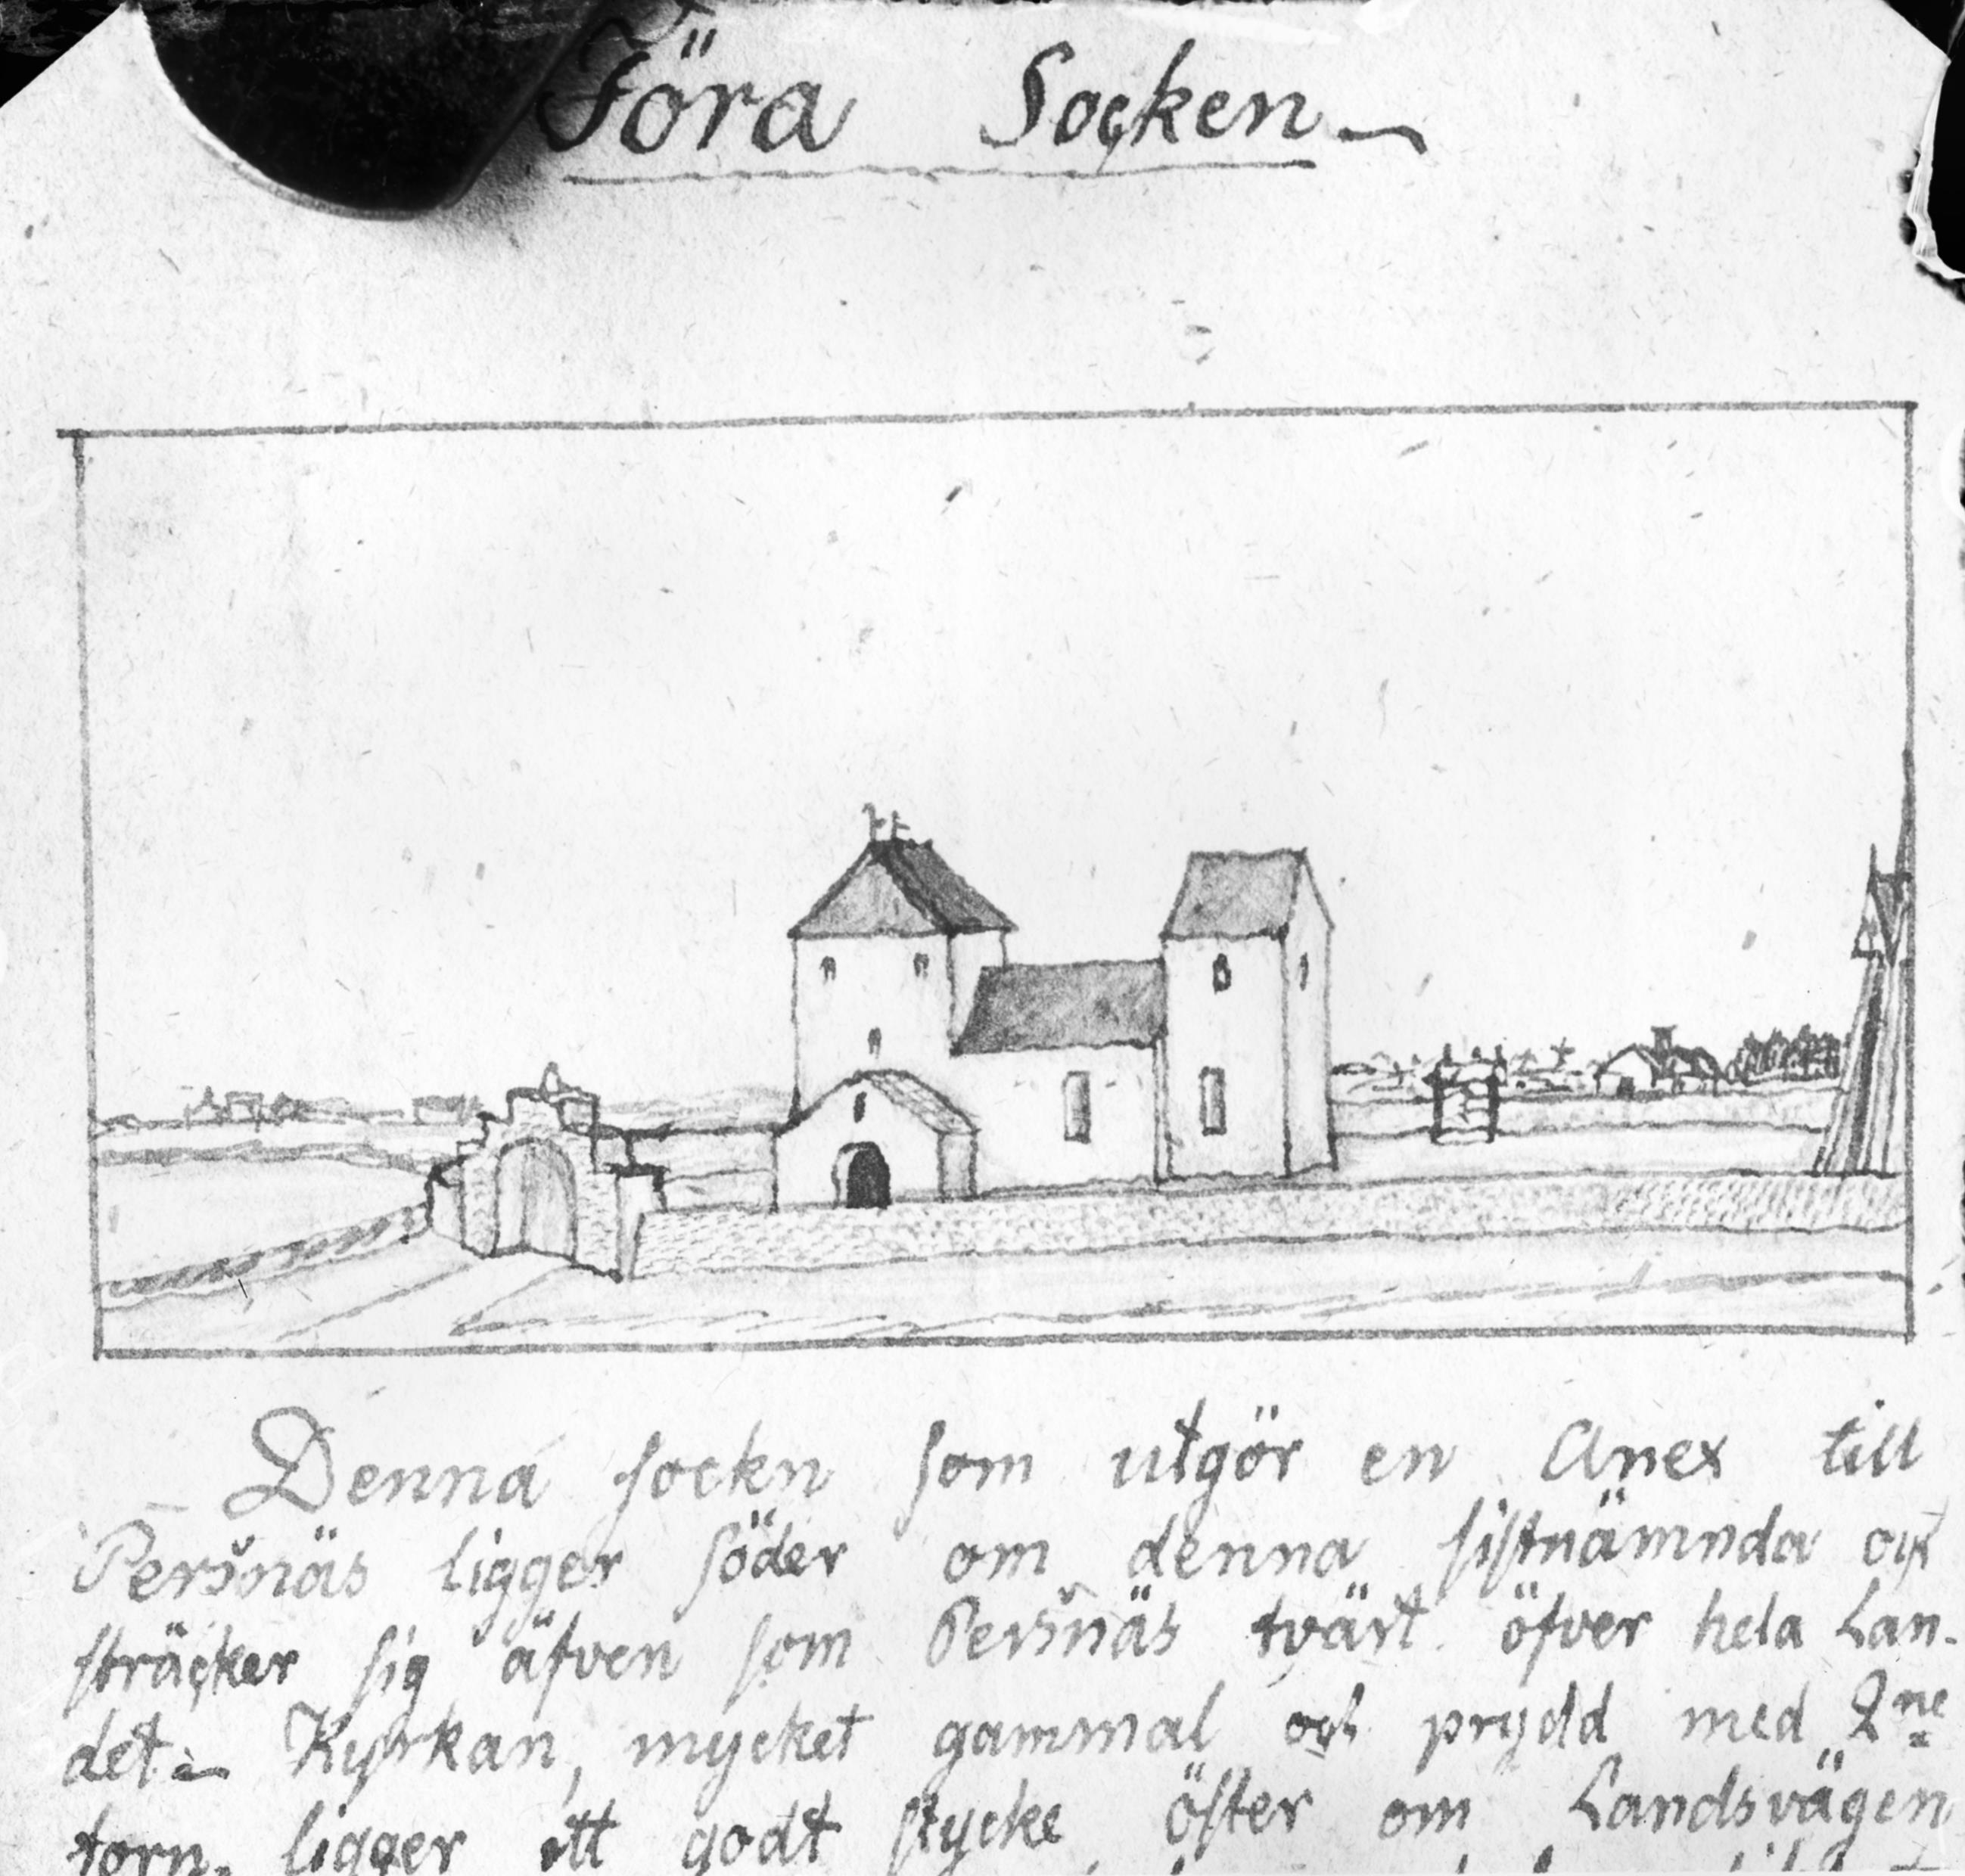 Föra Socken
Denna sockn som utgör en Anex till
Persnäs ligger söder om denna sistnämnda och
sträcker sig äfven som Persnäs tvärt öfver hela Lan-
det. Kyrkan, mycket gammal och prydd med 2ne
torn, ligger ett godt stycke öster om Landsvägen